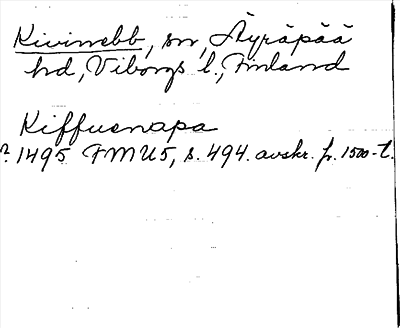 Kivinebb, sn, Äyräpää
hd, Viborgs l., Finland
Kiffuenapa
? 1495 FMU5, s. 494. avskr. fr. 1500-t.